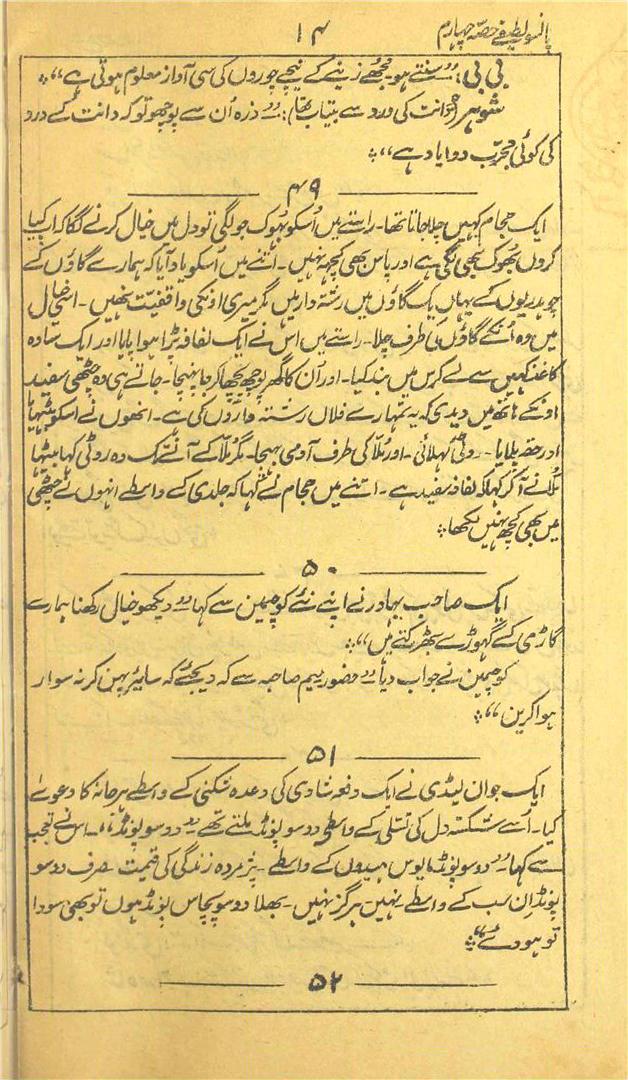 پانسو لطیفے حصہ چہارم
۱۴
بی بی: ”سنتے ہو۔ مجھے زینے کے نیچے چوروں کی سی آواز معلوم ہوتی ہے“
شوہر (دانت کی درد سے بیتاب تھا): ”ذرہ اُن سے پوچھو تو کہ دانت کے درد
کی کوئی مجرّب دوا یاد ہے“
۴۹
ایک حجام کہیں چلا جاتا تھا۔ راستے میں اُسکو بُہوک جو لگی تو دل میں خیال کرنے لگا کہ اب کیا
کروں بھوک بھی لگی ہے اور پاس بھی کچھہ نہیں۔ اتنے میں اُسکو یاد آیا کہ ہمارے گاؤں کے
چوہدریوں کے یہاں یک گاؤں میں رشتہ دار ہیں مگر میری اونکی واقفیت نہیں۔ اسی خیال
میں وہ اُنکے گاؤں کی طرف چلا۔ راستے میں اس نے ایک لفافہ پڑا ہوا پایا اور ایک سادہ
کاغذ کہیں سے لے کر اس میں بند کیا۔ اور اُن کا گھر پوچھہ پچھا کر جا پہنچا۔ جاتے ہی وہ چٹھی سفید
اونکے ہاتھہ میں دیدی کہ یہ تمہارے فلاں رشتہ داروں کی ہے۔ انھوں نے اسکو بٹہایا
اور حقہ پلایا۔ روٹی کہلائی۔ اور مُلّا کی طرف آدمی بہیجا۔ مگر مُلّا کے آنے تک وہ روٹی کہا بیٹہا
مُلّا نے آ کر کہا کہ لفافہ سفید ہے۔ اتنے میں حجام نے کہا کہ جلدی کے واسطے انہوں نے چٹھی
میں بھی کچھ نہیں لکھا
۵۰
ایک صاحب بہادر نے اپنے نئے کوچمین سے کہا ”دیکھو خیال رکھنا ہمارے
گاڑی کے گھوڑے بھڑکتے ہیں“
کوچمین نے جواب دیا ”حضور میم صاحبہ سے کہ دیجئے کہ سایہ پہن کر نہ سوار
ہوا کرین“
۵۱
ایک جوان لیڈی نے ایک دفعہ شادی کی وعدہ شکنی کے واسطے ہرجانہ کا دعوےٰ
کیا۔ اُسے شکستہ دل کی تسلّی کے واسطے دو سو پونڈ ملتے تھے ”دو سو پونڈ“۔ اس نے تعجب
سے کہا۔ ”دو سو پونڈ مایوس امیدوں کے واسطے۔ پژمردہ زندگی کی قیمت صرف دو سو
پونڈ ان سب کے واسطے۔ نہیں ہرگز نہیں۔ بھلا دو سو پچاس پونڈ ہوں تو بھی سودا
تو ہو دے“
۵۲